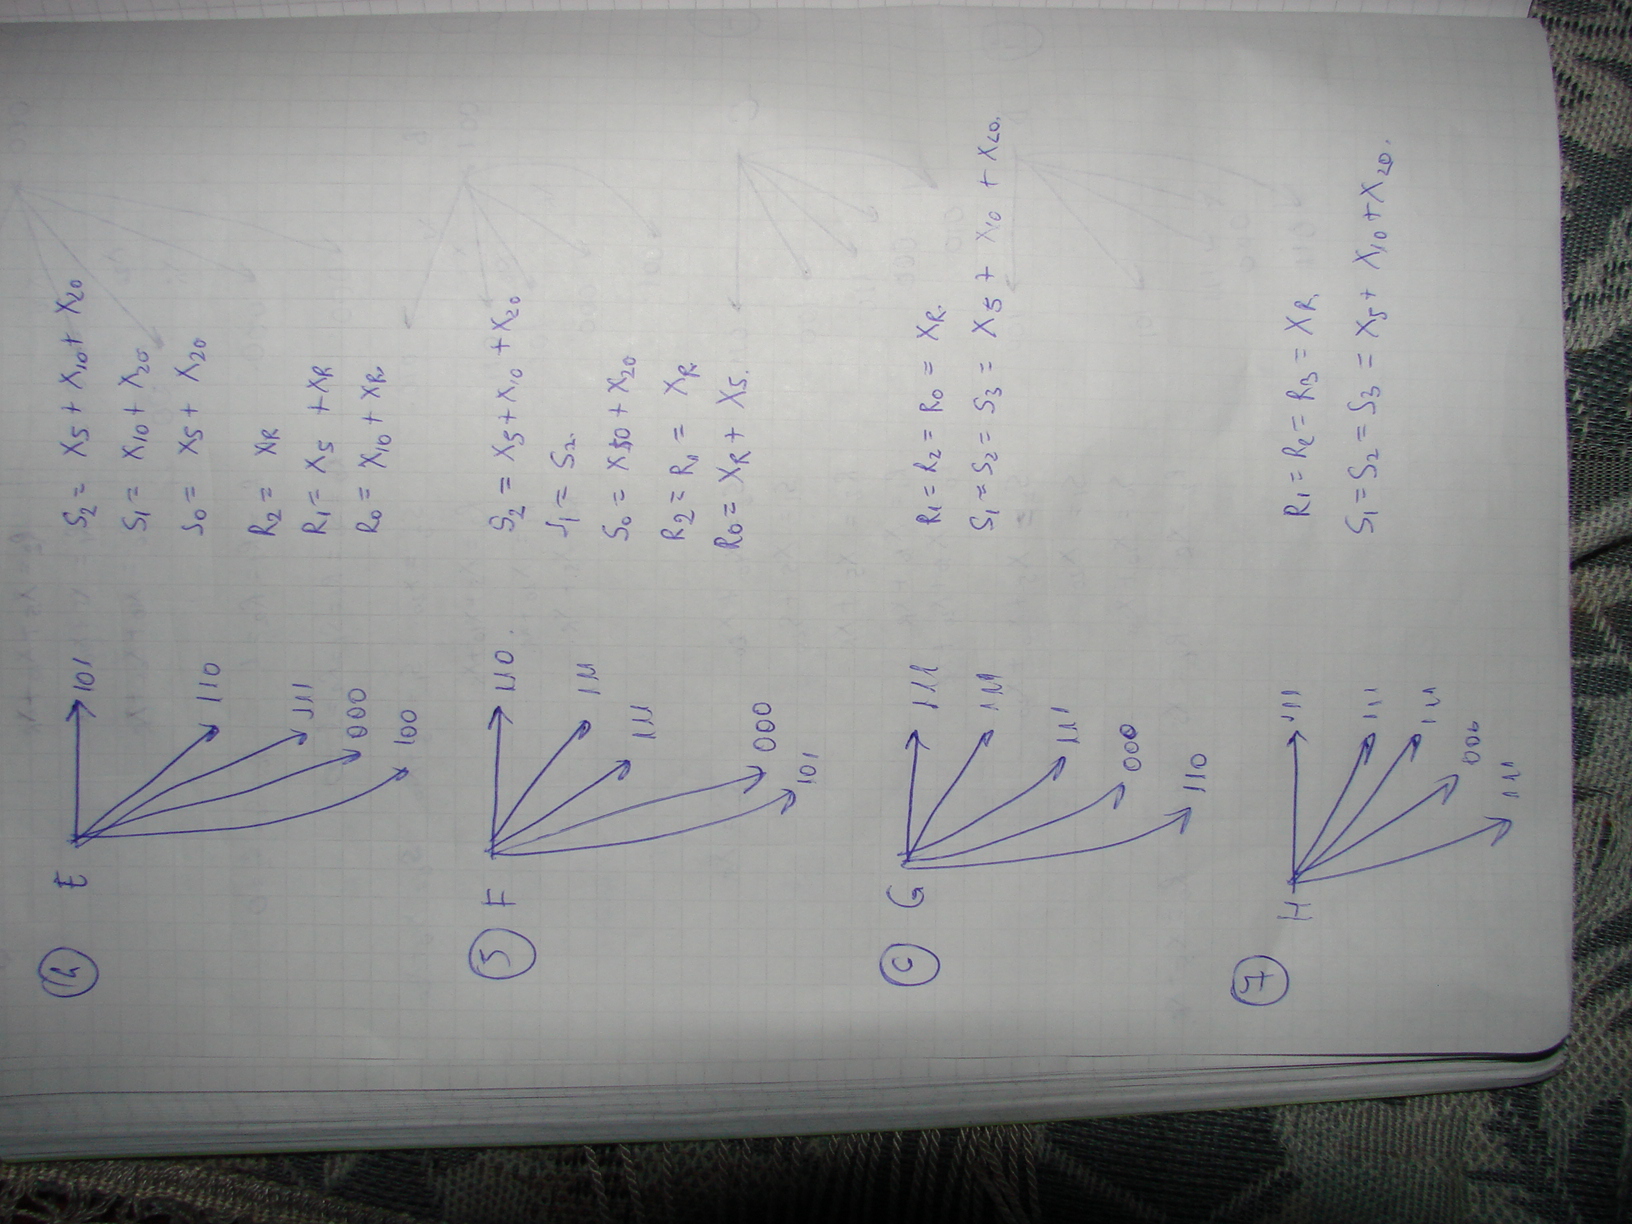 E
101
110
111
000
100
S2 = X5 + X10 + X20
S1 = X10 + X20
S0 = X5 + X20
R2 = XR
R1 = X5 + XR
R0 = X10 + XR
5 F
110.
111
111
000
101
S2 = X5 + X10 + X20
S1 = S2.
S0 = X10 + X20
R2 = R1 = XR
R0 = XR + X5.
G
111
111
111
000
110
R1 = R2 = R0 = XR.
S1 = S2 = S3 = X5 + X10 + X20.
7 H
111
111
111
000
111
R1 = R2 = R3 = XR.
S1 = S2 = S3 = X5 + X10 + X20.